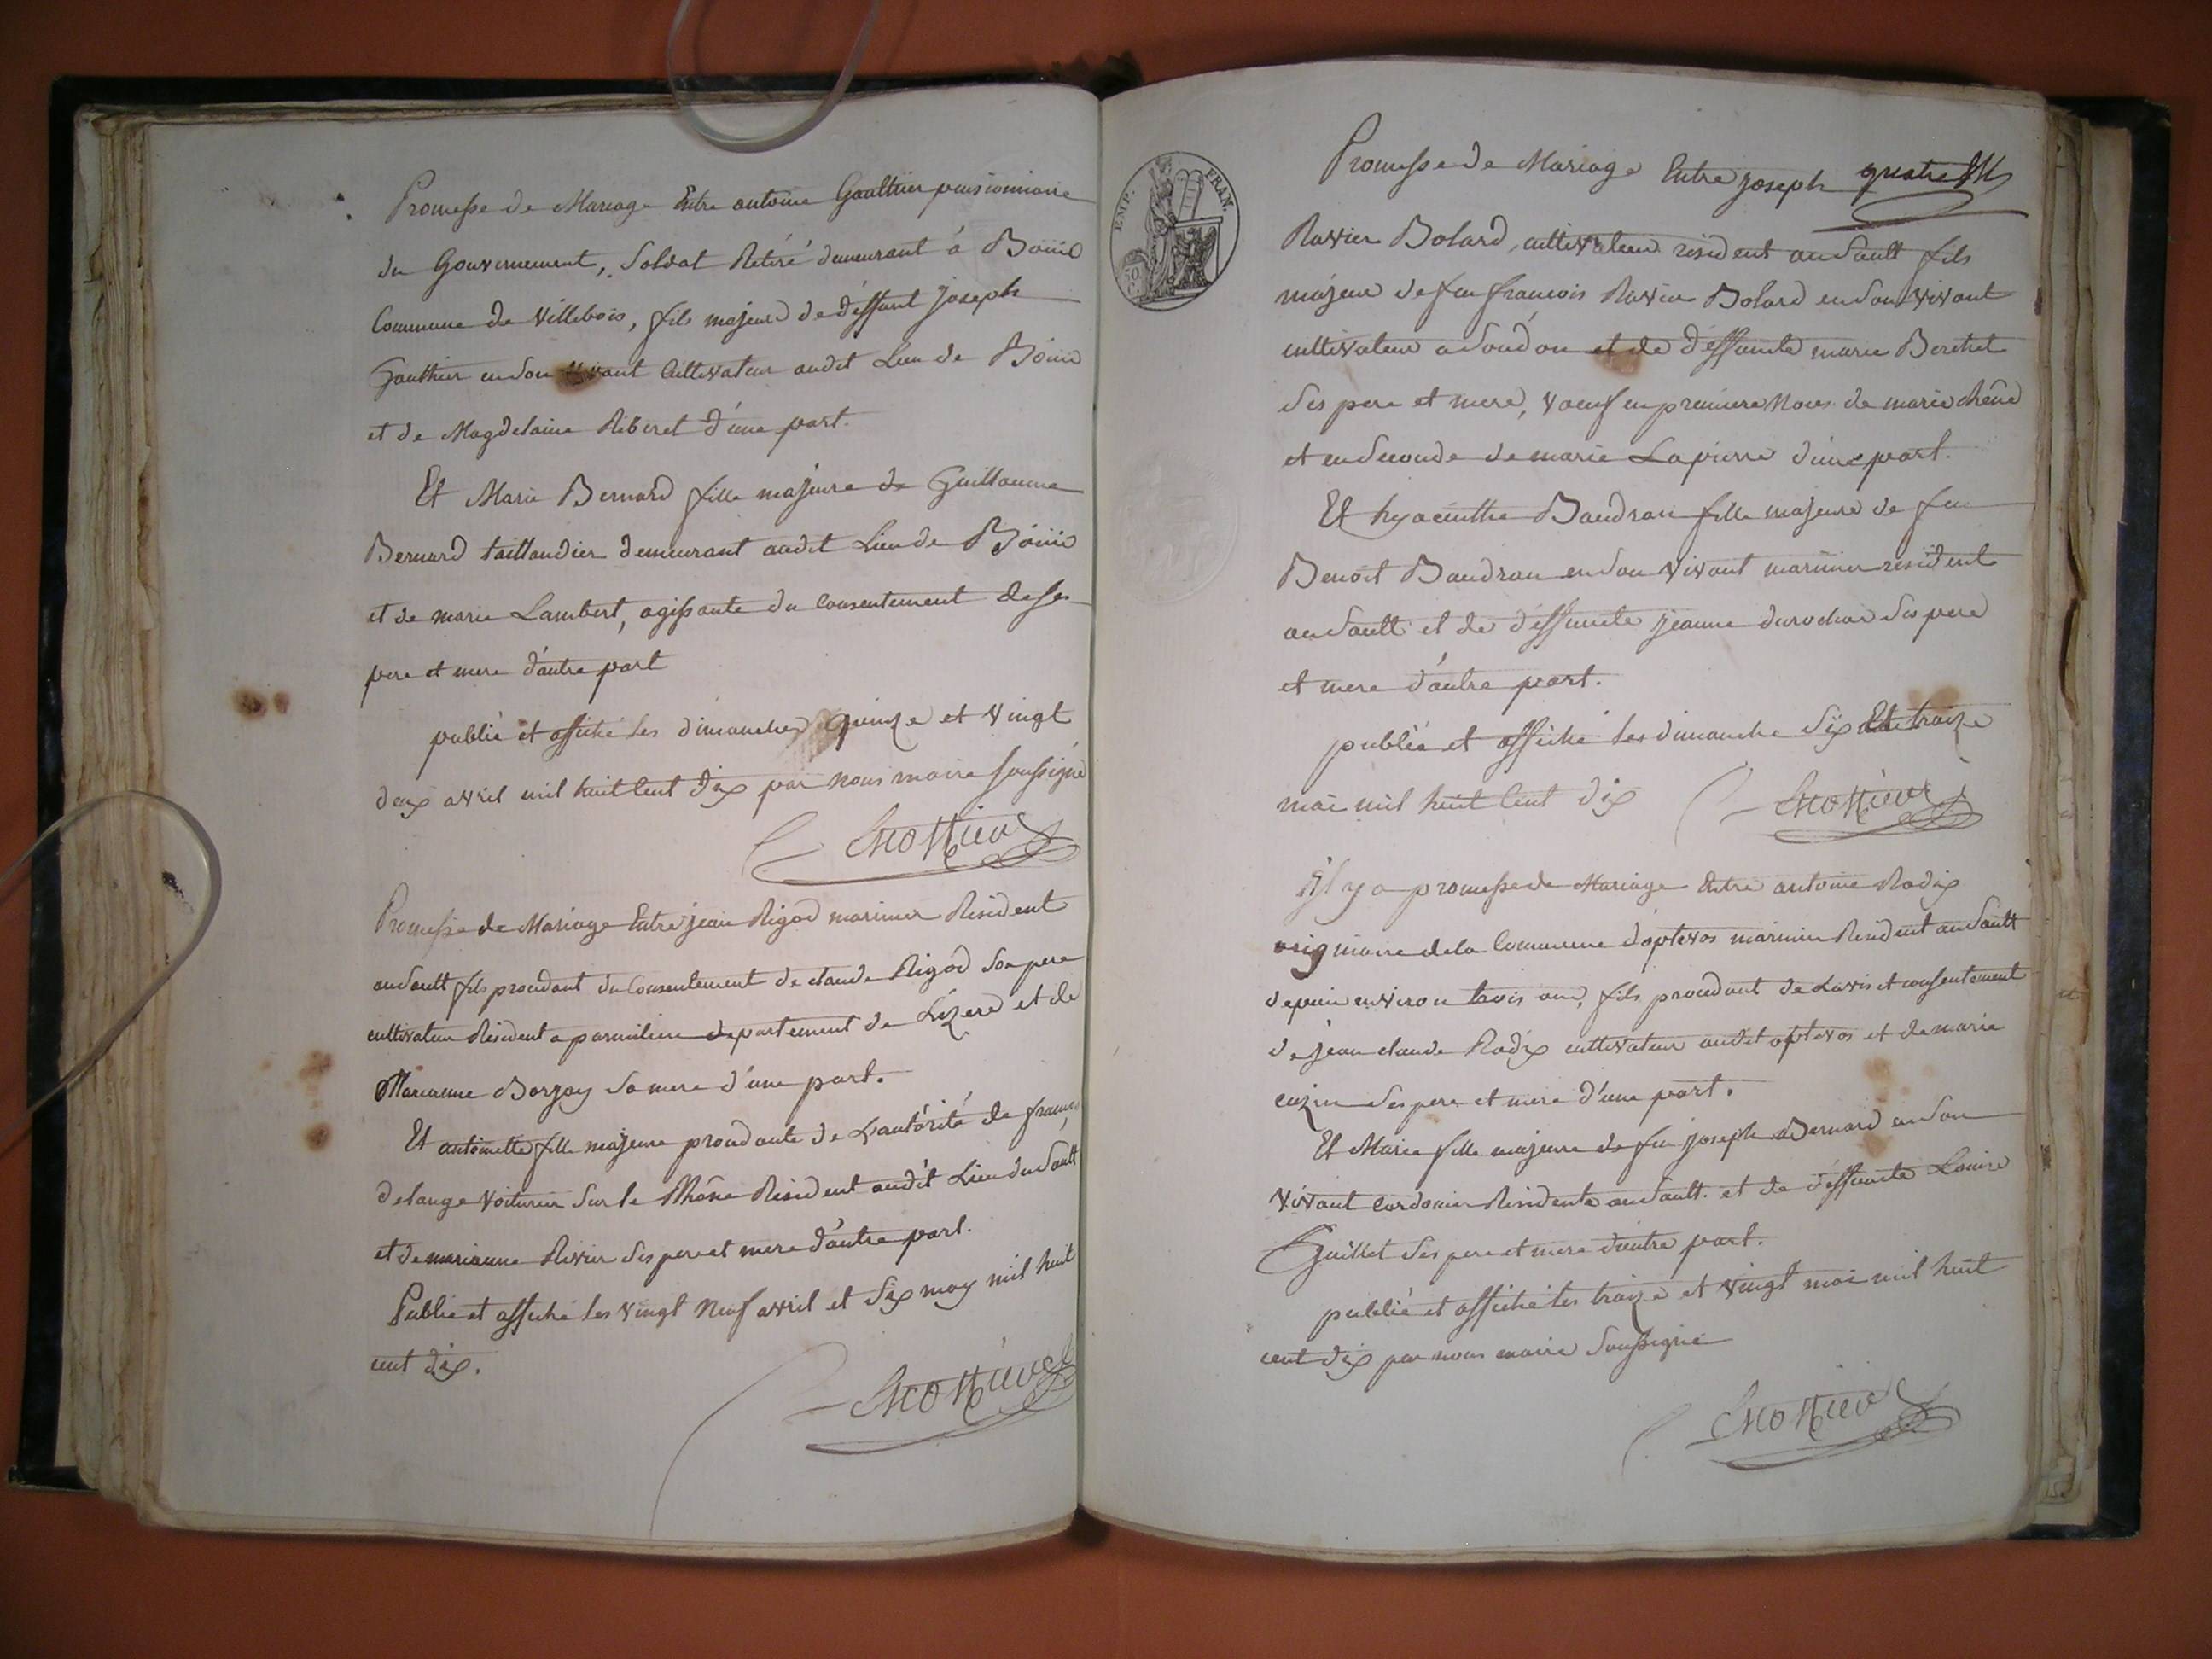 Promesse de Mariage Entre antoine Gauthier pensionnaire
du Gouvernement, Soldat Retiré demeurant à Bouis
Commune de Villebois, fils majeur de déffunt joseph
Gauthier en son vivant Cultivateur audit Lieu de Bouis
et de Magdelaine Riberet d'une part.
Et Marie Bernard fille majeure de Guillaume
Bernard taillandier demeurant audit Lieu de Bouis
et de marie Lambert, agissante du Consentement de ses
pere et mere d'autre part
publié et affiché les dimanches quinze et vingt
deux avril mil huit Cent dix par nous maire soussigné
Promesse de Mariage Entre jean Rigod marinier Résident
au Sault fils procedant du Consentement de claude Rigod Son pere
cultivateur Résident a parmilieu departement de Lizere et de
Marianne Borjay Sa mere d'une part.
Et antoinette fille majeure procedante de L'autorité de françois
delange Voiturier Sur le Rhône Résident audit Lieu du Sault
et de marianne Rivier Ses pere et mere d'autre part.
Publié et affiché les vingt Neuf avril et Six may mil huit
cent dix.
EMP. FRAN.
Promesse de Mariage Entre joseph quatre
Ravier Bolard, cultivateur résident au Sault fils
majeur de feu francois Ravier Bolard en Son vivant
cultivateur a Soudon et de déffunte marie Berchet
Ses pere et mere, vœuf en premiere Noces de marie chêne
et en Seconde de marie Lapierre d'une part.
Et hyacinthe Baudran fille majeure de feu
Benoit Baudran en Son Vivant marinier résident
au Sault et de déffunte jeanne durochas Ses pere
et mere d'autre part.
publié et affiché les dimanche Six Et traize
mai mil huit Cent dix
Il y a promesse de Mariage Entre antoine Rodix
originaire de la Commune d'optevos marinier Résident au Sault
depuis environ trois ans, fils procedant de Lavis et consentement
de jean claude Rodix cultivateur audit optevos et de marie
cuzin Ses pere et mere d'une part.
Et Marie fille majeure de feu joseph Bernard en Son
Vivant Cordonier Résidente au Sault. et de déffunte Louise
Guillet Ses pere et mere d'autre part.
publié et affiché les traize et vingt mai mil huit
cent dix par nous maire Soussigné